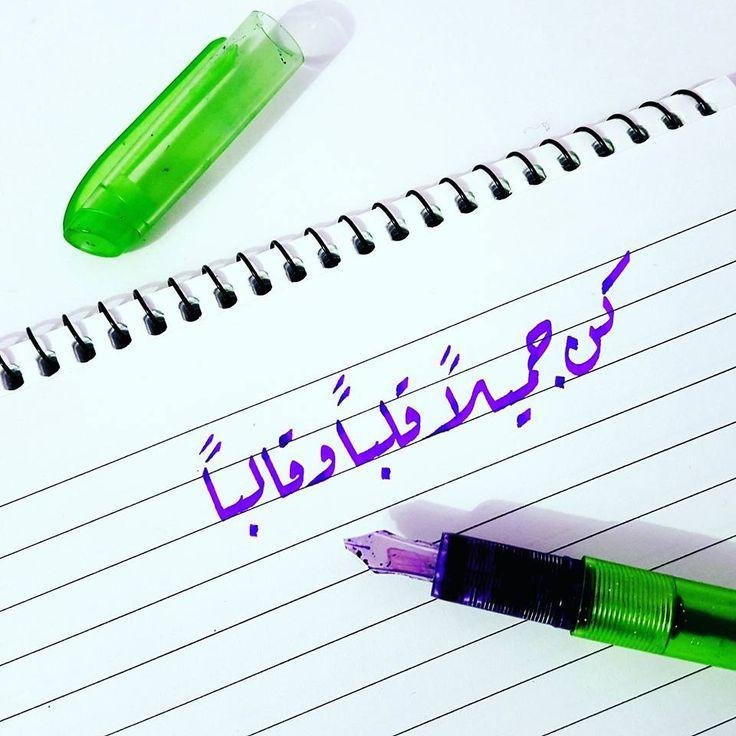 كن جميلاً قلباً وقالباً